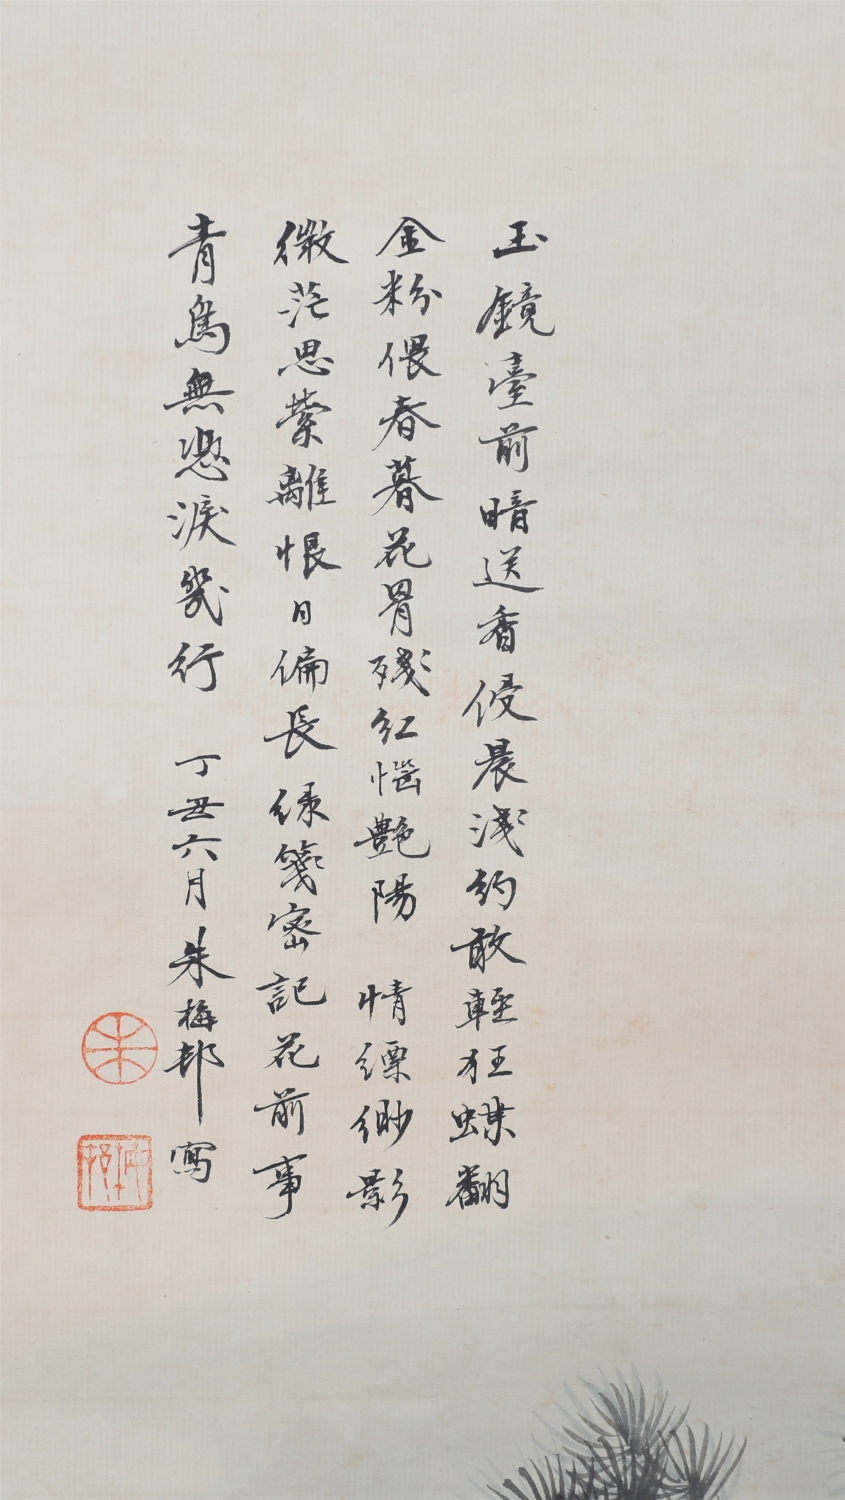 玉鏡臺前暗送香侵晨淺約敢輕狂蝶翻
金粉偎春暮花罥殘紅惱艷陽　情縹緲影
微茫思縈離恨日偏長綠箋密記花前事
青鳥無憑淚幾行　丁丑六月朱梅邨寫
朱
梅邨